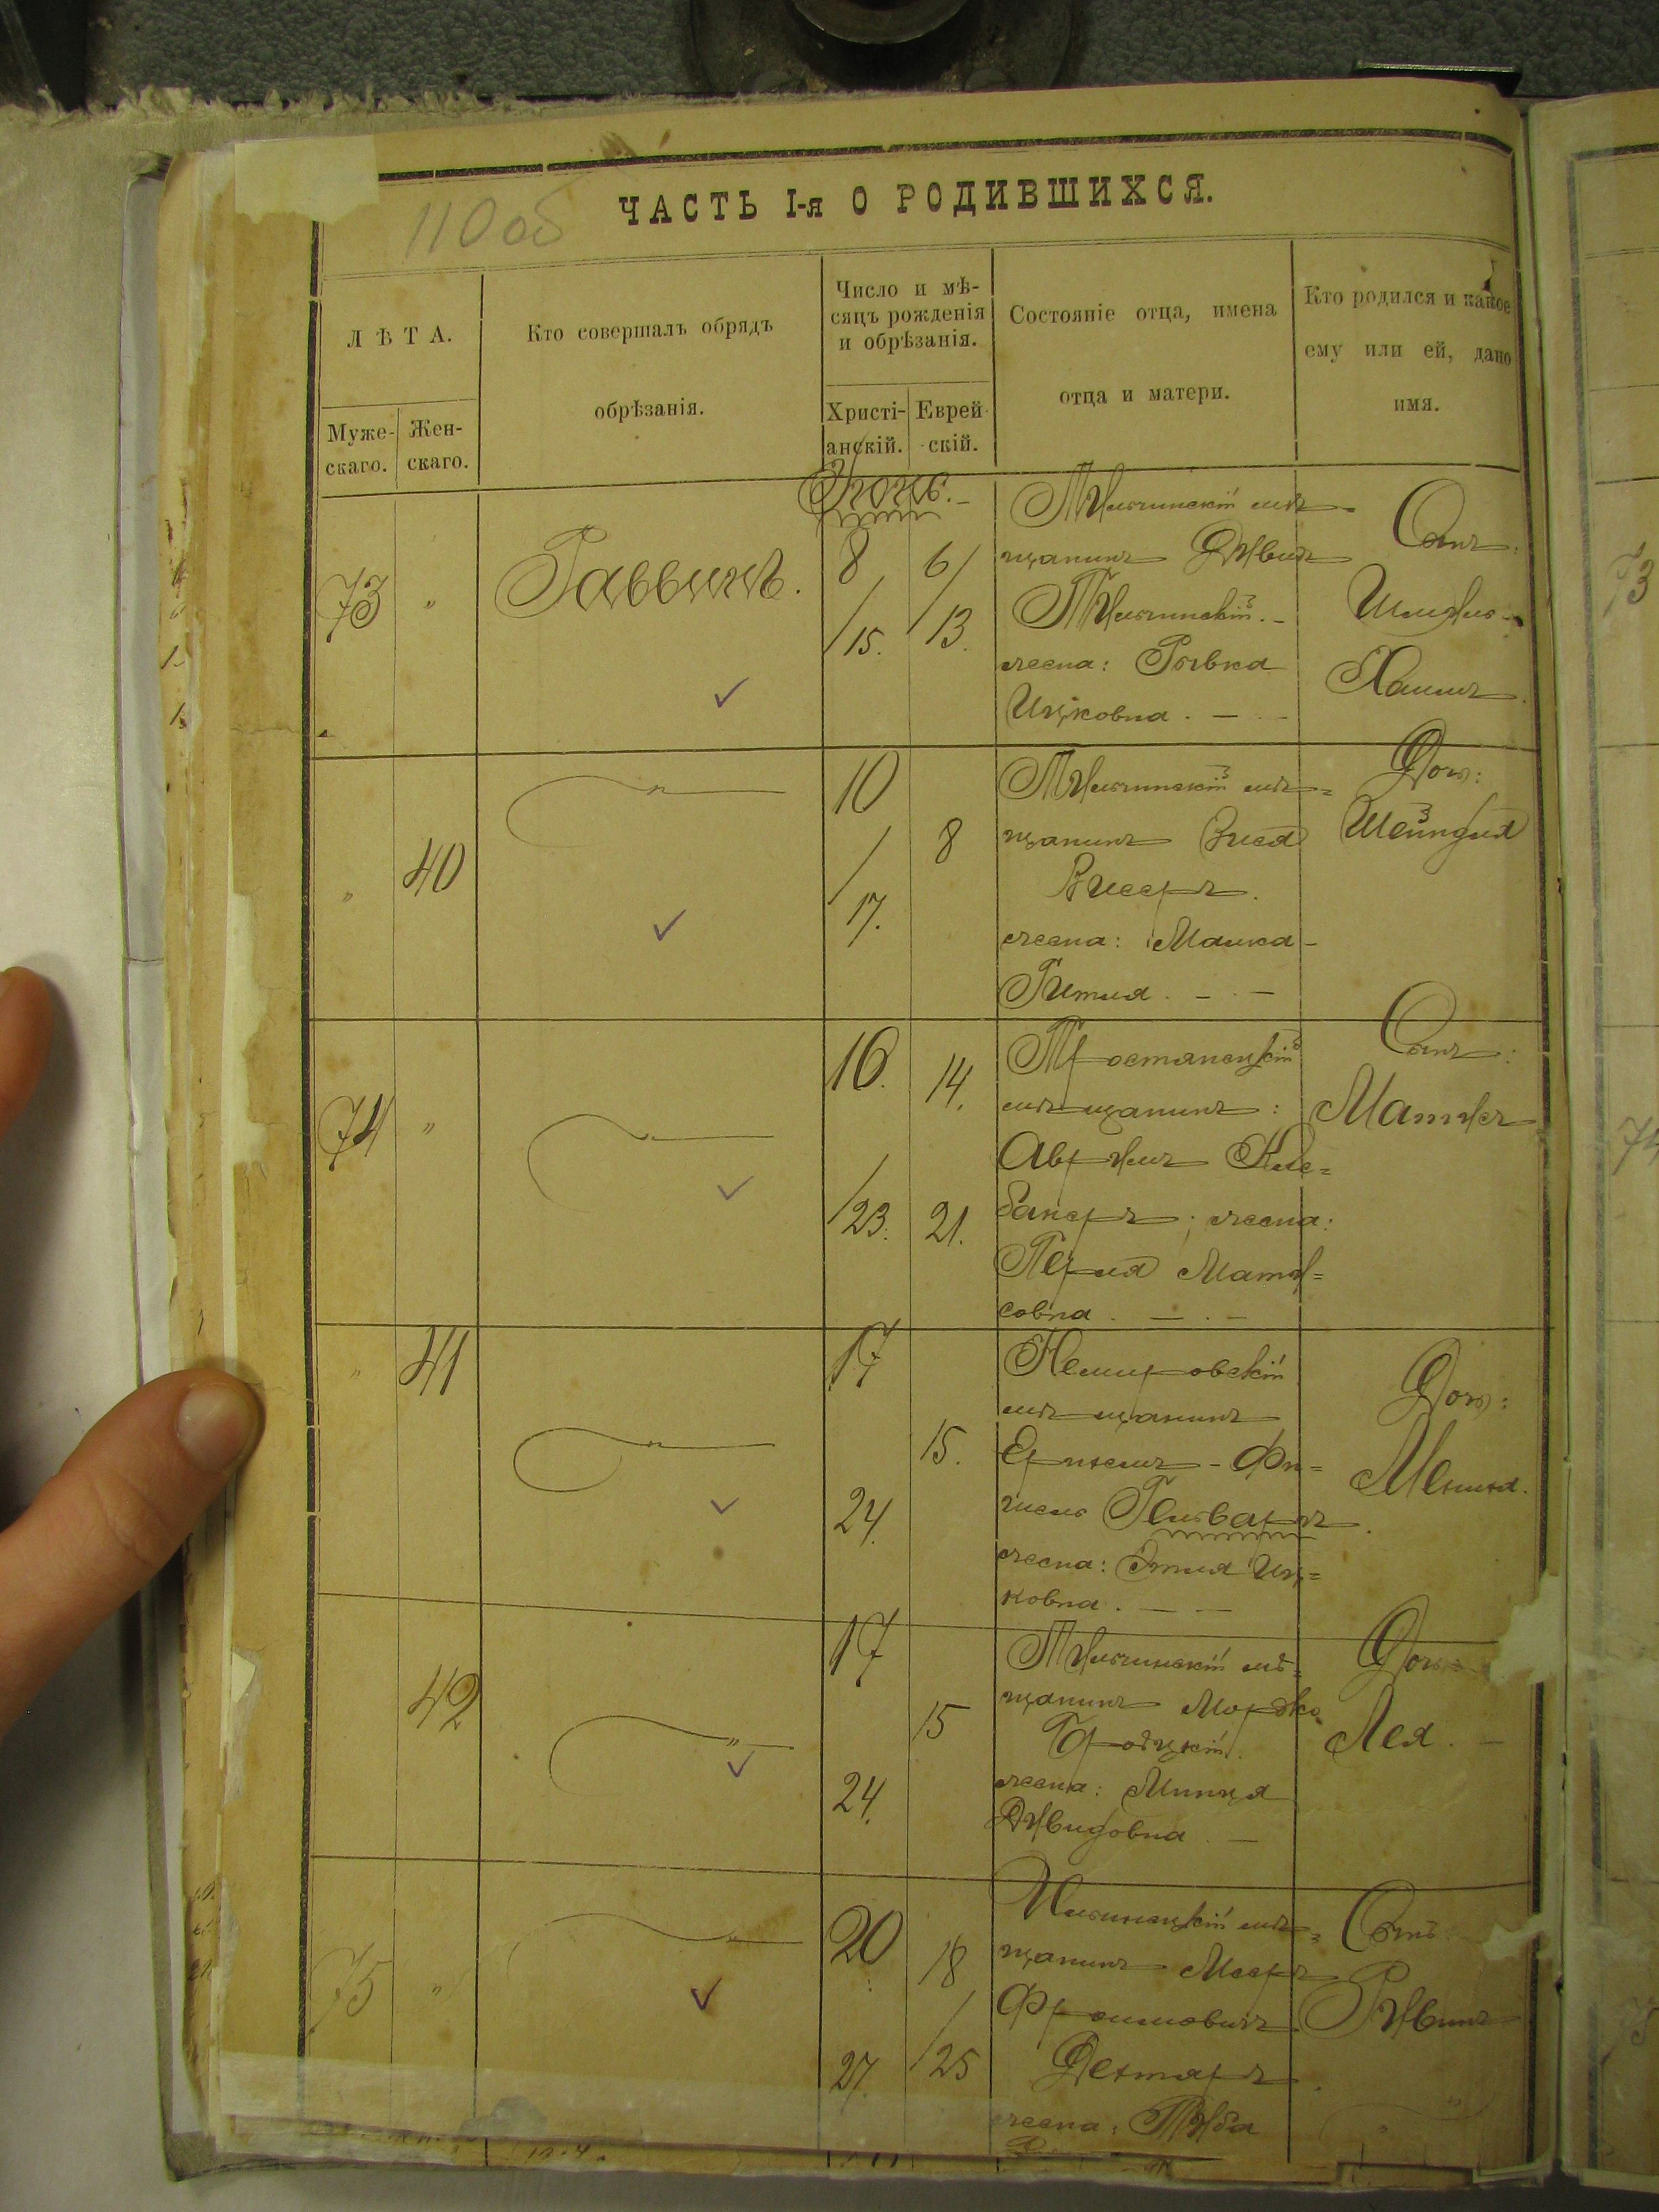 110 об
ЧАСТЬ I-я О РОДИВШИХСЯ.
ЛѢТА.
Муже-
скаго.
Жен-
скаго.
Кто совершалъ обрядъ
обрѣзанія.
Число и мѣ-
сяцъ рожденія
и обрѣзанія.
Христі-
анскій.
Еврей-
скій.
Состояніе отца, имена
отца и матери.
Кто родился и какое
ему или ей, дано
имя.
73
"
Раввинъ.
8
/15.
6/
/13.
Тульчинскій мѣ-
щанинъ Дувидъ
Тульчинскій. -
жена: Рывка
Ицковна. —
Сынъ:
Шмуль-
Хаимъ.
"
40
10
/
17.
8
Тульчинскій мѣ=
щанинъ
жена: Малка-
Гитля. —
Дочь:
Шейндля
74
"
16.
/23.
14.
21.
Тростянецкій
мѣщанинъ:
Аврумъ Кле=
банеръ; жена:
Перля Мату=
совна. —
Сынъ:
Матусъ
"
41
17
24.
15.
Немировскій
мѣщанинъ
жена: Этля Иц=
ковна. —
Дочь:
42
17
24.
15
Тульчинскій мѣ=
щанинъ Мордко
Бродцкій.
жена: Минця
Дувидовна. —
Дочь:
Лея. —
75
"
20
27.
18
/25
Ильинецкій мѣ=
щанинъ Мееръ
Фроимовичъ
Дехтяръ.
жена: Туба
Сынъ:
Рувинъ
73
74